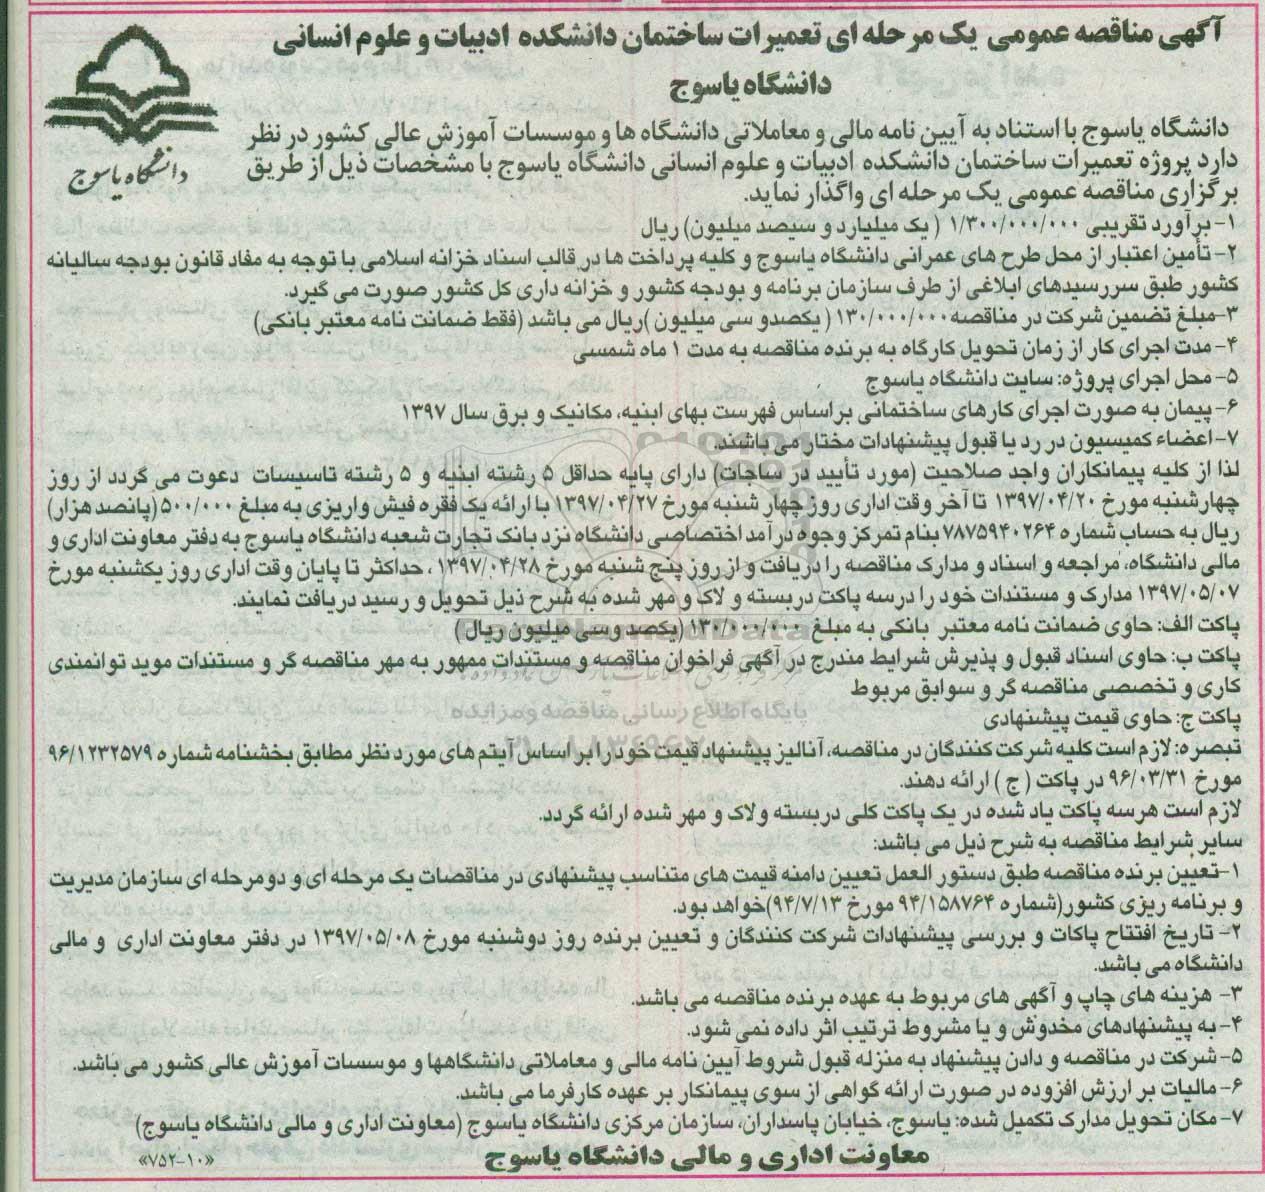 آگهی مناقصه عمومی یک مرحله ای تعمیرات ساختمان دانشکده ادبیات و علوم انسانی
دانشگاه یاسوج
دانشگاه یاسوج
دانشگاه یاسوج با استناد به آیین نامه مالی و معاملاتی دانشگاه ها و موسسات آموزش عالی کشور در نظر
دارد پروژه تعمیرات ساختمان دانشکده ادبیات و علوم انسانی دانشگاه یاسوج با مشخصات ذیل از طریق
برگزاری مناقصه عمومی یک مرحله ای واگذار نماید.
۱- برآورد تقریبی ۱/۳۰۰/۰۰۰/۰۰۰ ( یک میلیارد و سیصد میلیون) ریال
۲- تأمین اعتبار از محل طرح های عمرانی دانشگاه یاسوج و کلیه پرداخت ها در قالب اسناد خزانه اسلامی با توجه به مفاد قانون بودجه سالیانه
کشور طبق سررسیدهای ابلاغی از طرف سازمان برنامه و بودجه کشور و خزانه داری کل کشور صورت می گیرد.
۳-مبلغ تضمین شرکت در مناقصه ۱۳۰/۰۰۰/۰۰۰ ( یکصدو سی میلیون )ریال می باشد (فقط ضمانت نامه معتبر بانکی)
۴- مدت اجرای کار از زمان تحویل کارگاه به برنده مناقصه به مدت ۱ ماه شمسی
۵- محل اجرای پروژه: سایت دانشگاه یاسوج
۶- پیمان به صورت اجرای کارهای ساختمانی براساس فهرست بهای ابنیه، مکانیک و برق سال ۱۳۹۷
۷- اعضاء کمیسیون در رد یا قبول پیشنهادات مختار می باشند.
لذا از کلیه پیمانکاران واجد صلاحیت (مورد تأیید در ساجات) دارای پایه حداقل ۵ رشته ابنیه و ۵ رشته تاسیسات دعوت می گردد از روز
چهارشنبه مورخ ۱۳۹۷/۰۴/۲۰ تا آخر وقت اداری روز چهار شنبه مورخ ۱۳۹۷/۰۴/۲۷ با ارائه یک فقره فیش واریزی به مبلغ ۵۰۰/۰۰۰ (پانصد هزار)
ریال به حساب شماره ۷۸۷۵۹۴۰۲۶۴ بنام تمرکز وجوه درآمد اختصاصی دانشگاه نزد بانک تجارت شعبه دانشگاه یاسوج به دفتر معاونت اداری و
مالی دانشگاه، مراجعه و اسناد و مدارک مناقصه را دریافت و از روز پنج شنبه مورخ ۱۳۹۷/۰۴/۲۸ ، حداکثر تا پایان وقت اداری روز یکشنبه مورخ
۱۳۹۷/۰۵/۰۷ مدارک و مستندات خود را درسه پاکت دربسته و لاک و مهر شده به شرح ذیل تحویل و رسید دریافت نمایند.
پاکت الف: حاوی ضمانت نامه معتبر بانکی به مبلغ ۱۳۰/۰۰۰/۰۰۰ (یکصد وسی میلیون ریال )
پاکت ب: حاوی اسناد قبول و پذیرش شرایط مندرج در آگهی فراخوان مناقصه و مستندات ممهور به مهر مناقصه گر و مستندات موید توانمندی
کاری و تخصصی مناقصه گر و سوابق مربوط
پاکت ج: حاوی قیمت پیشنهادی
پایگاه اطلاع رسانی مناقصه و مزایده
تبصره: لازم است کلیه شرکت کنندگان در مناقصه، آنالیز پیشنهاد قیمت خود را بر اساس آیتم های مورد نظر مطابق بخشنامه شماره ۹۶/۱۲۳۲۵۷۹
مورخ ۹۶/۰۳/۳۱ در پاکت ( ج ) ارائه دهند.
لازم است هرسه پاکت یاد شده در یک پاکت کلی دربسته ولاک و مهر شده ارائه گردد.
سایر شرایط مناقصه به شرح ذیل می باشد:
۱-تعیین برنده مناقصه طبق دستور العمل تعیین دامنه قیمت های متناسب پیشنهادی در مناقصات یک مرحله ای و دومرحله ای سازمان مدیریت
و برنامه ریزی کشور(شماره ۹۴/۱۵۸۷۶۴ مورخ ۹۴/۷/۱۳)خواهد بود.
۲- تاریخ افتتاح پاکات و بررسی پیشنهادات شرکت کنندگان و تعیین برنده روز دوشنبه مورخ ۱۳۹۷/۰۵/۰۸ در دفتر معاونت اداری و مالی
دانشگاه می باشد.
۳- هزینه های چاپ و آگهی های مربوط به عهده برنده مناقصه می باشد.
۴- به پیشنهادهای مخدوش و یا مشروط ترتیب اثر داده نمی شود.
۵- شرکت در مناقصه و دادن پیشنهاد به منزله قبول شروط آیین نامه مالی و معاملاتی دانشگاهها و موسسات آموزش عالی کشور می باشد.
۶- مالیات بر ارزش افزوده در صورت ارائه گواهی از سوی پیمانکار بر عهده کارفرما می باشد.
۷- مکان تحویل مدارک تکمیل شده: یاسوج، خیابان پاسداران، سازمان مرکزی دانشگاه یاسوج (معاونت اداری و مالی دانشگاه یاسوج)
معاونت اداری و مالی دانشگاه یاسوج
«۷۵۲-۱۰»